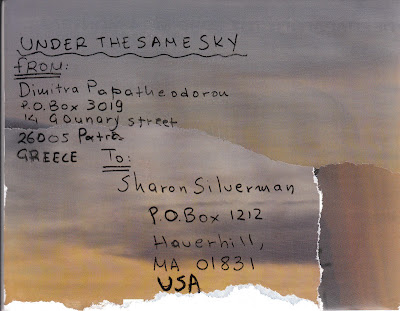 UNDER THE SAME SKY
FROM:
Dimitra Papatheodorou
P.O.Box 3019
14 Gounary street
26005 Patra
GREECE To:
Sharon Silverman
P.O.Box 1212
Haverhill,
MA 01831
USA